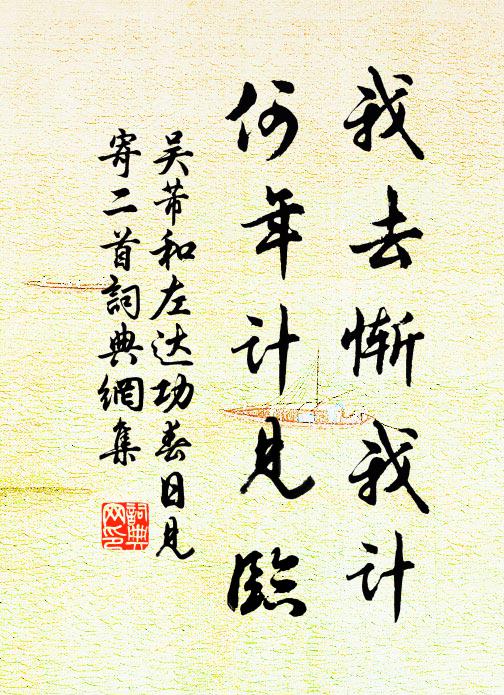 我去惭我计
何年计见临
吴芾和左达功春日见
寄二首詞典網集
詞典网印